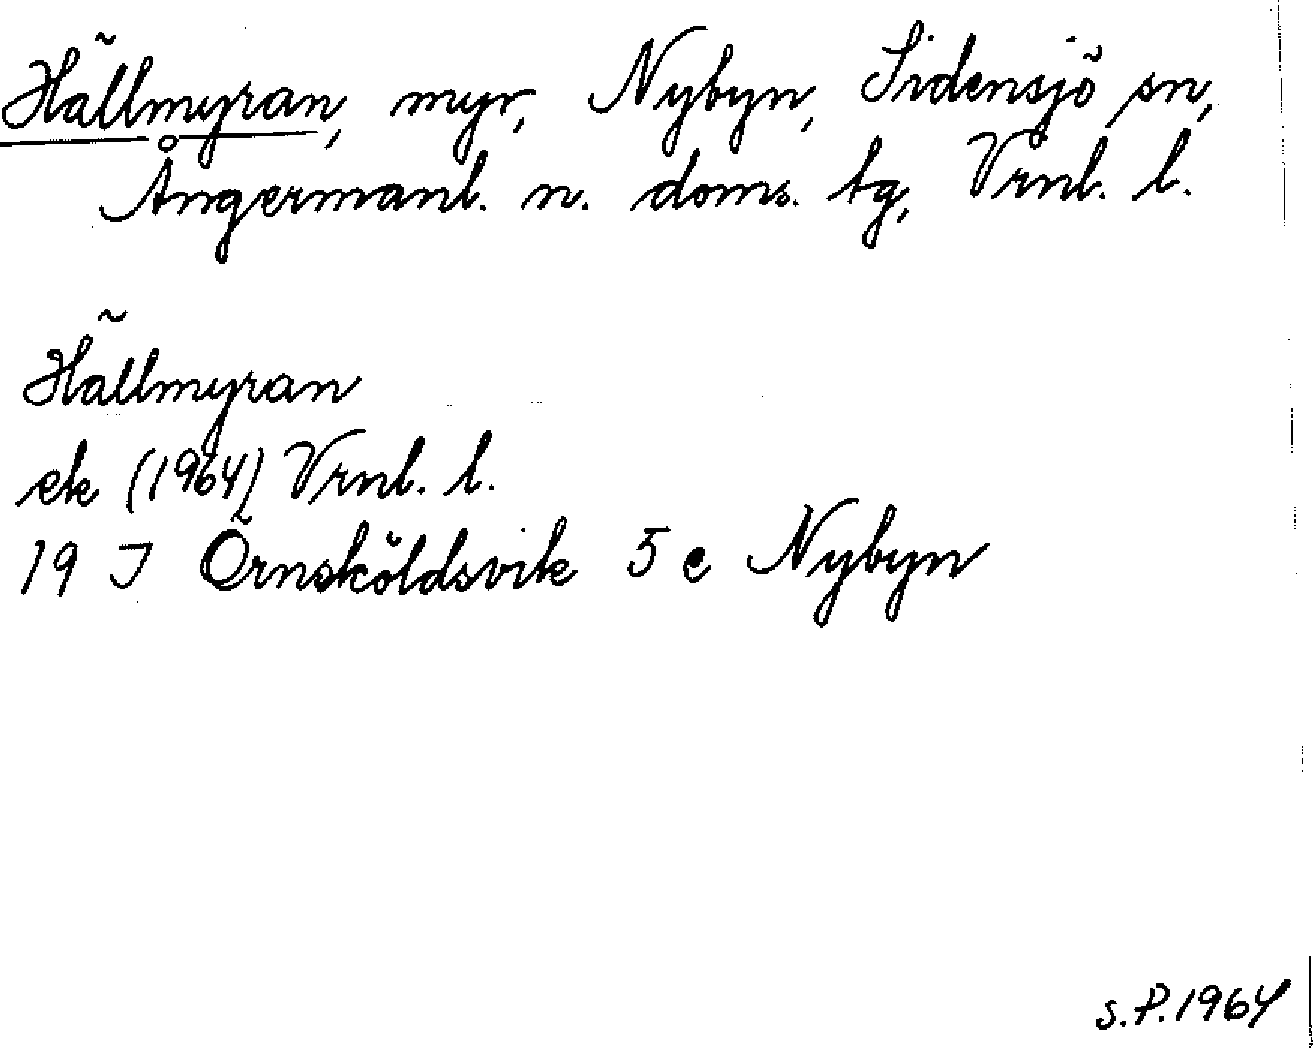 Hällmyran, myr, Nybyn, Sidensjö sn,
Ångermanl. n. doms. tg, Vrnl. l.
Hällmyran
ek (1964) Vrnl. l.
19 J Örnsköldsvik 5 c Nybyn
S.P. 1964